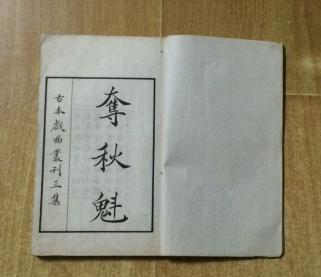 奪秋魁
古本戲曲叢刊三集